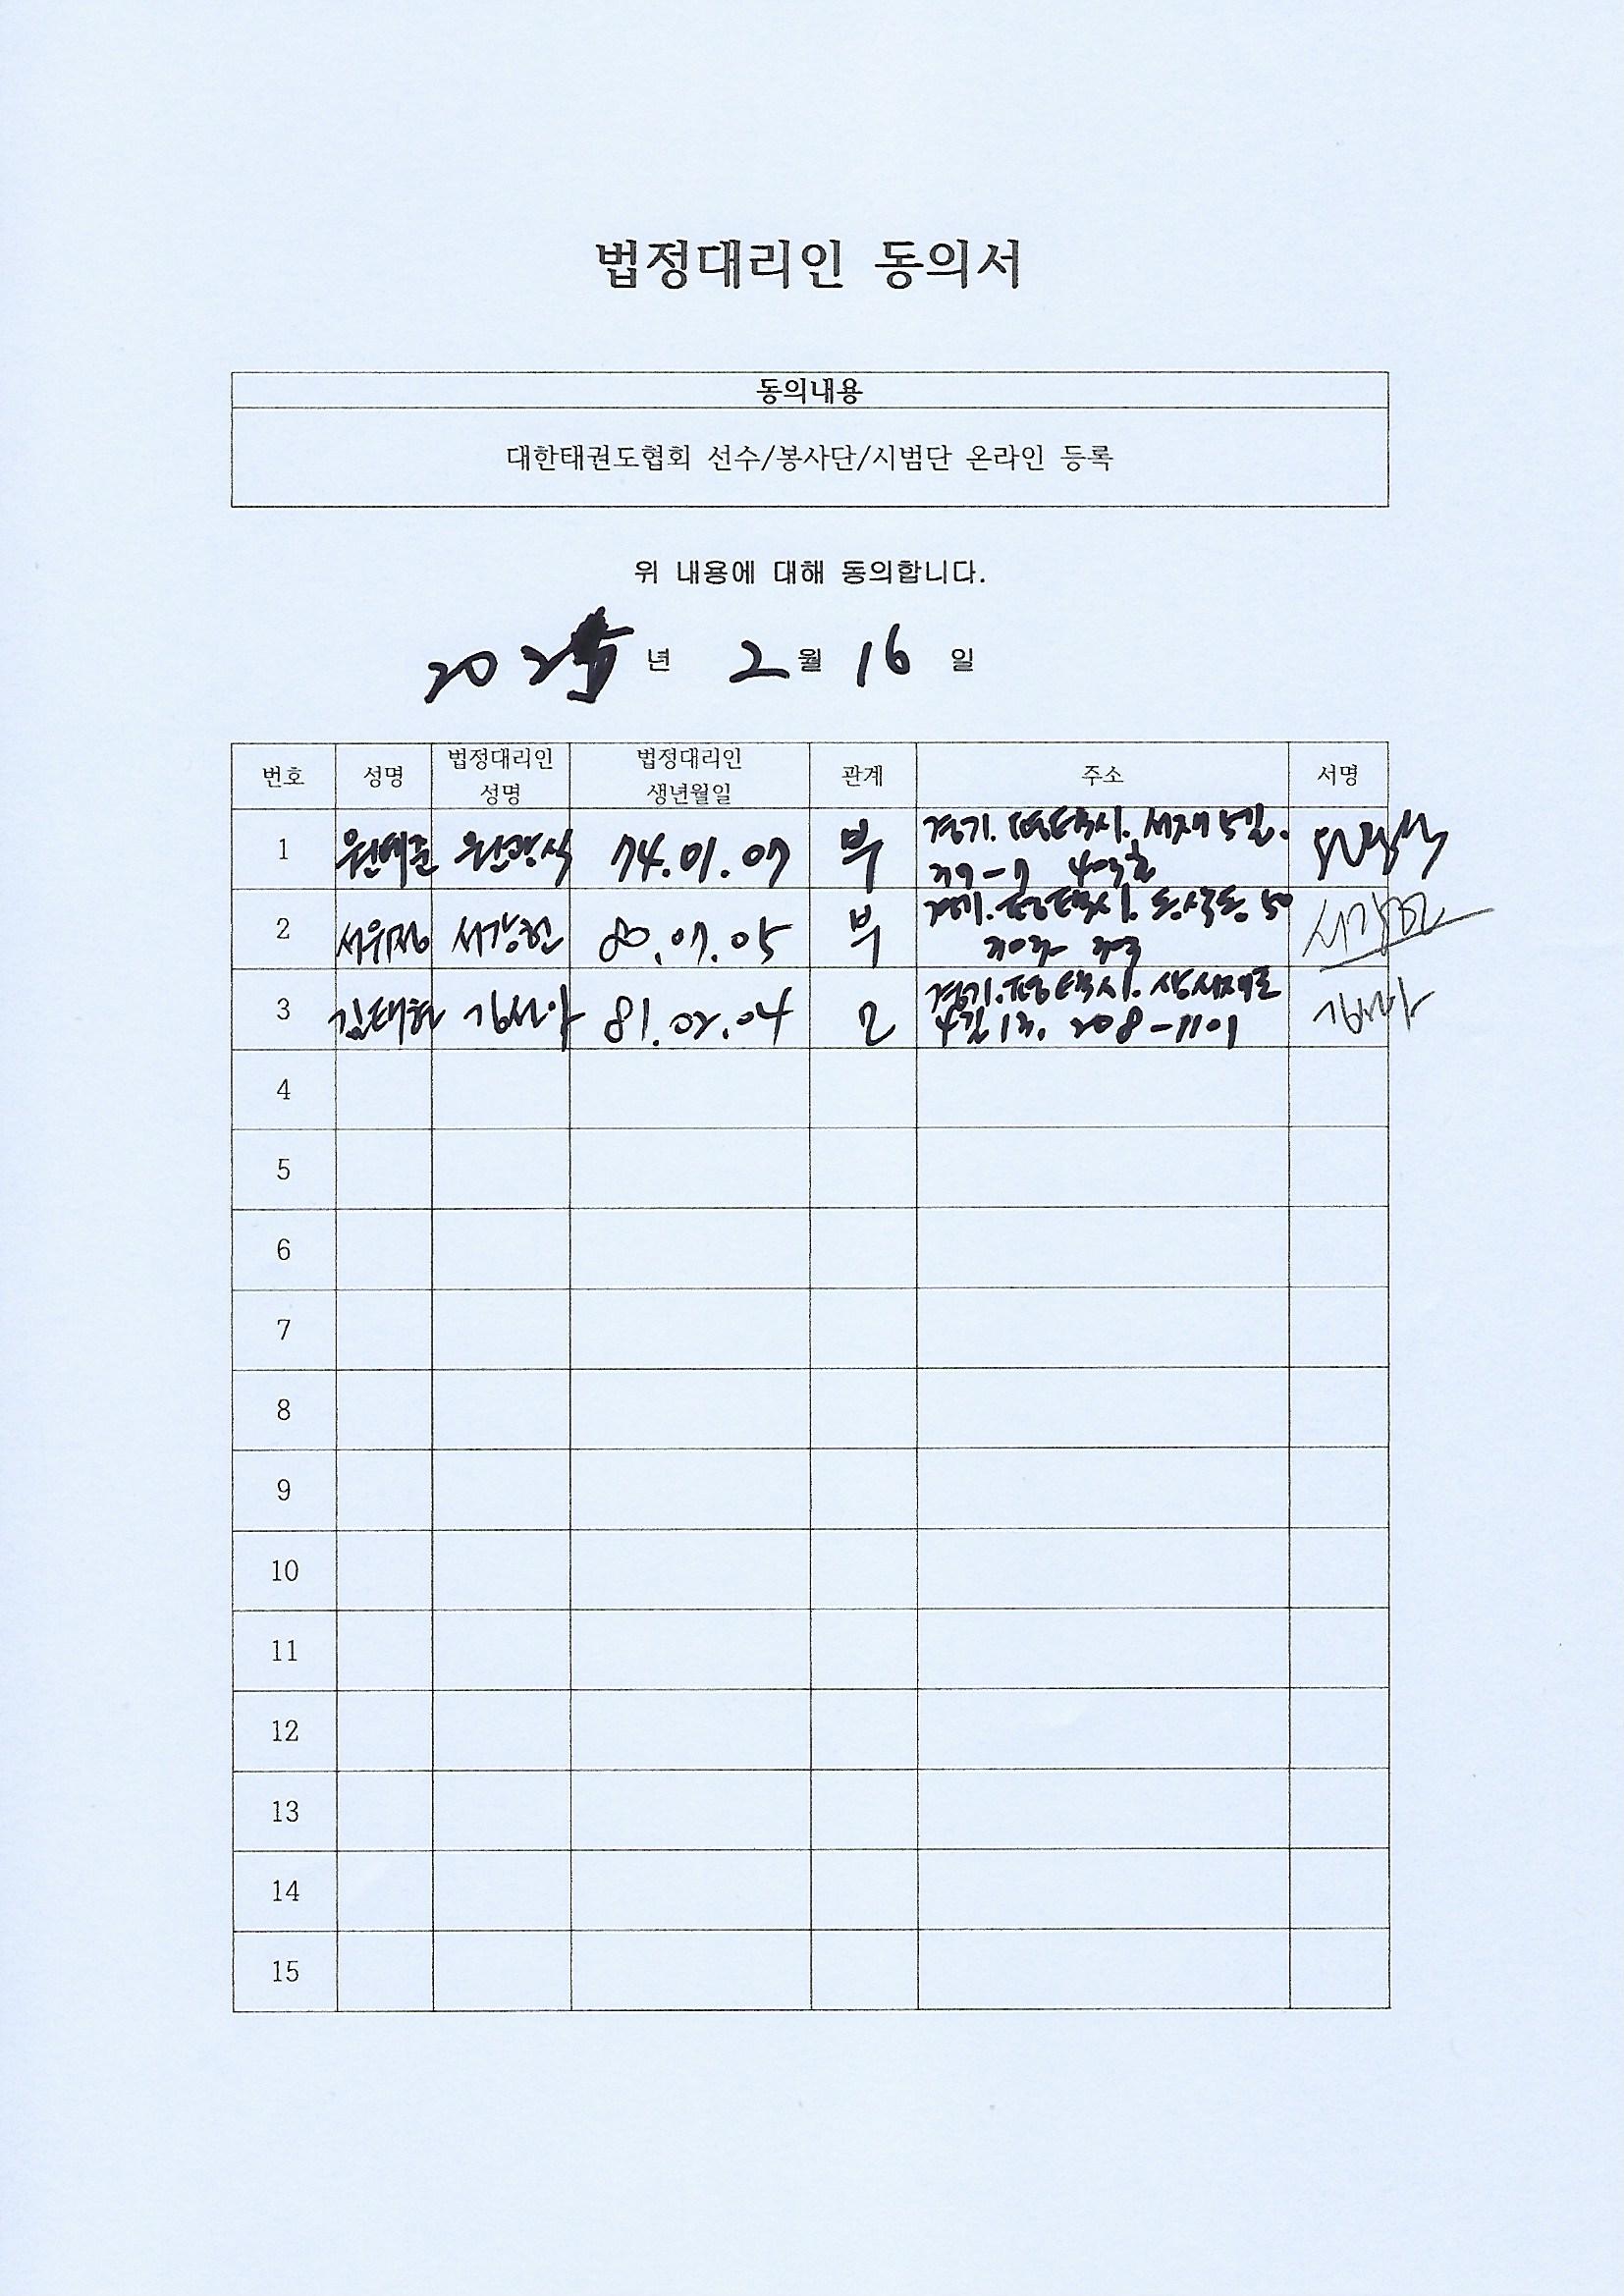 법정대리인 동의서
동의내용
대한태권도협회 선수/봉사단/시범단 온라인 등록
위 내용에 대해 동의합니다.
202 년 2 월 16 일
번호 성명 법정대리인 성명 법정대리인 생년월일 관계 주소 서명
1 원예준 원광식 74.01.07 부 경기. 평택시. 서재5길.
39-7 403호
2 서유정 서강현 80.07.05 부 경기. 평택시. 동삭동 50
3 김태현 김선아 81.02.04 모 경기. 평택시. 상서재로
4길 13, 208-1101
4
5
6
7
8
9
10
11
12
13
14
15